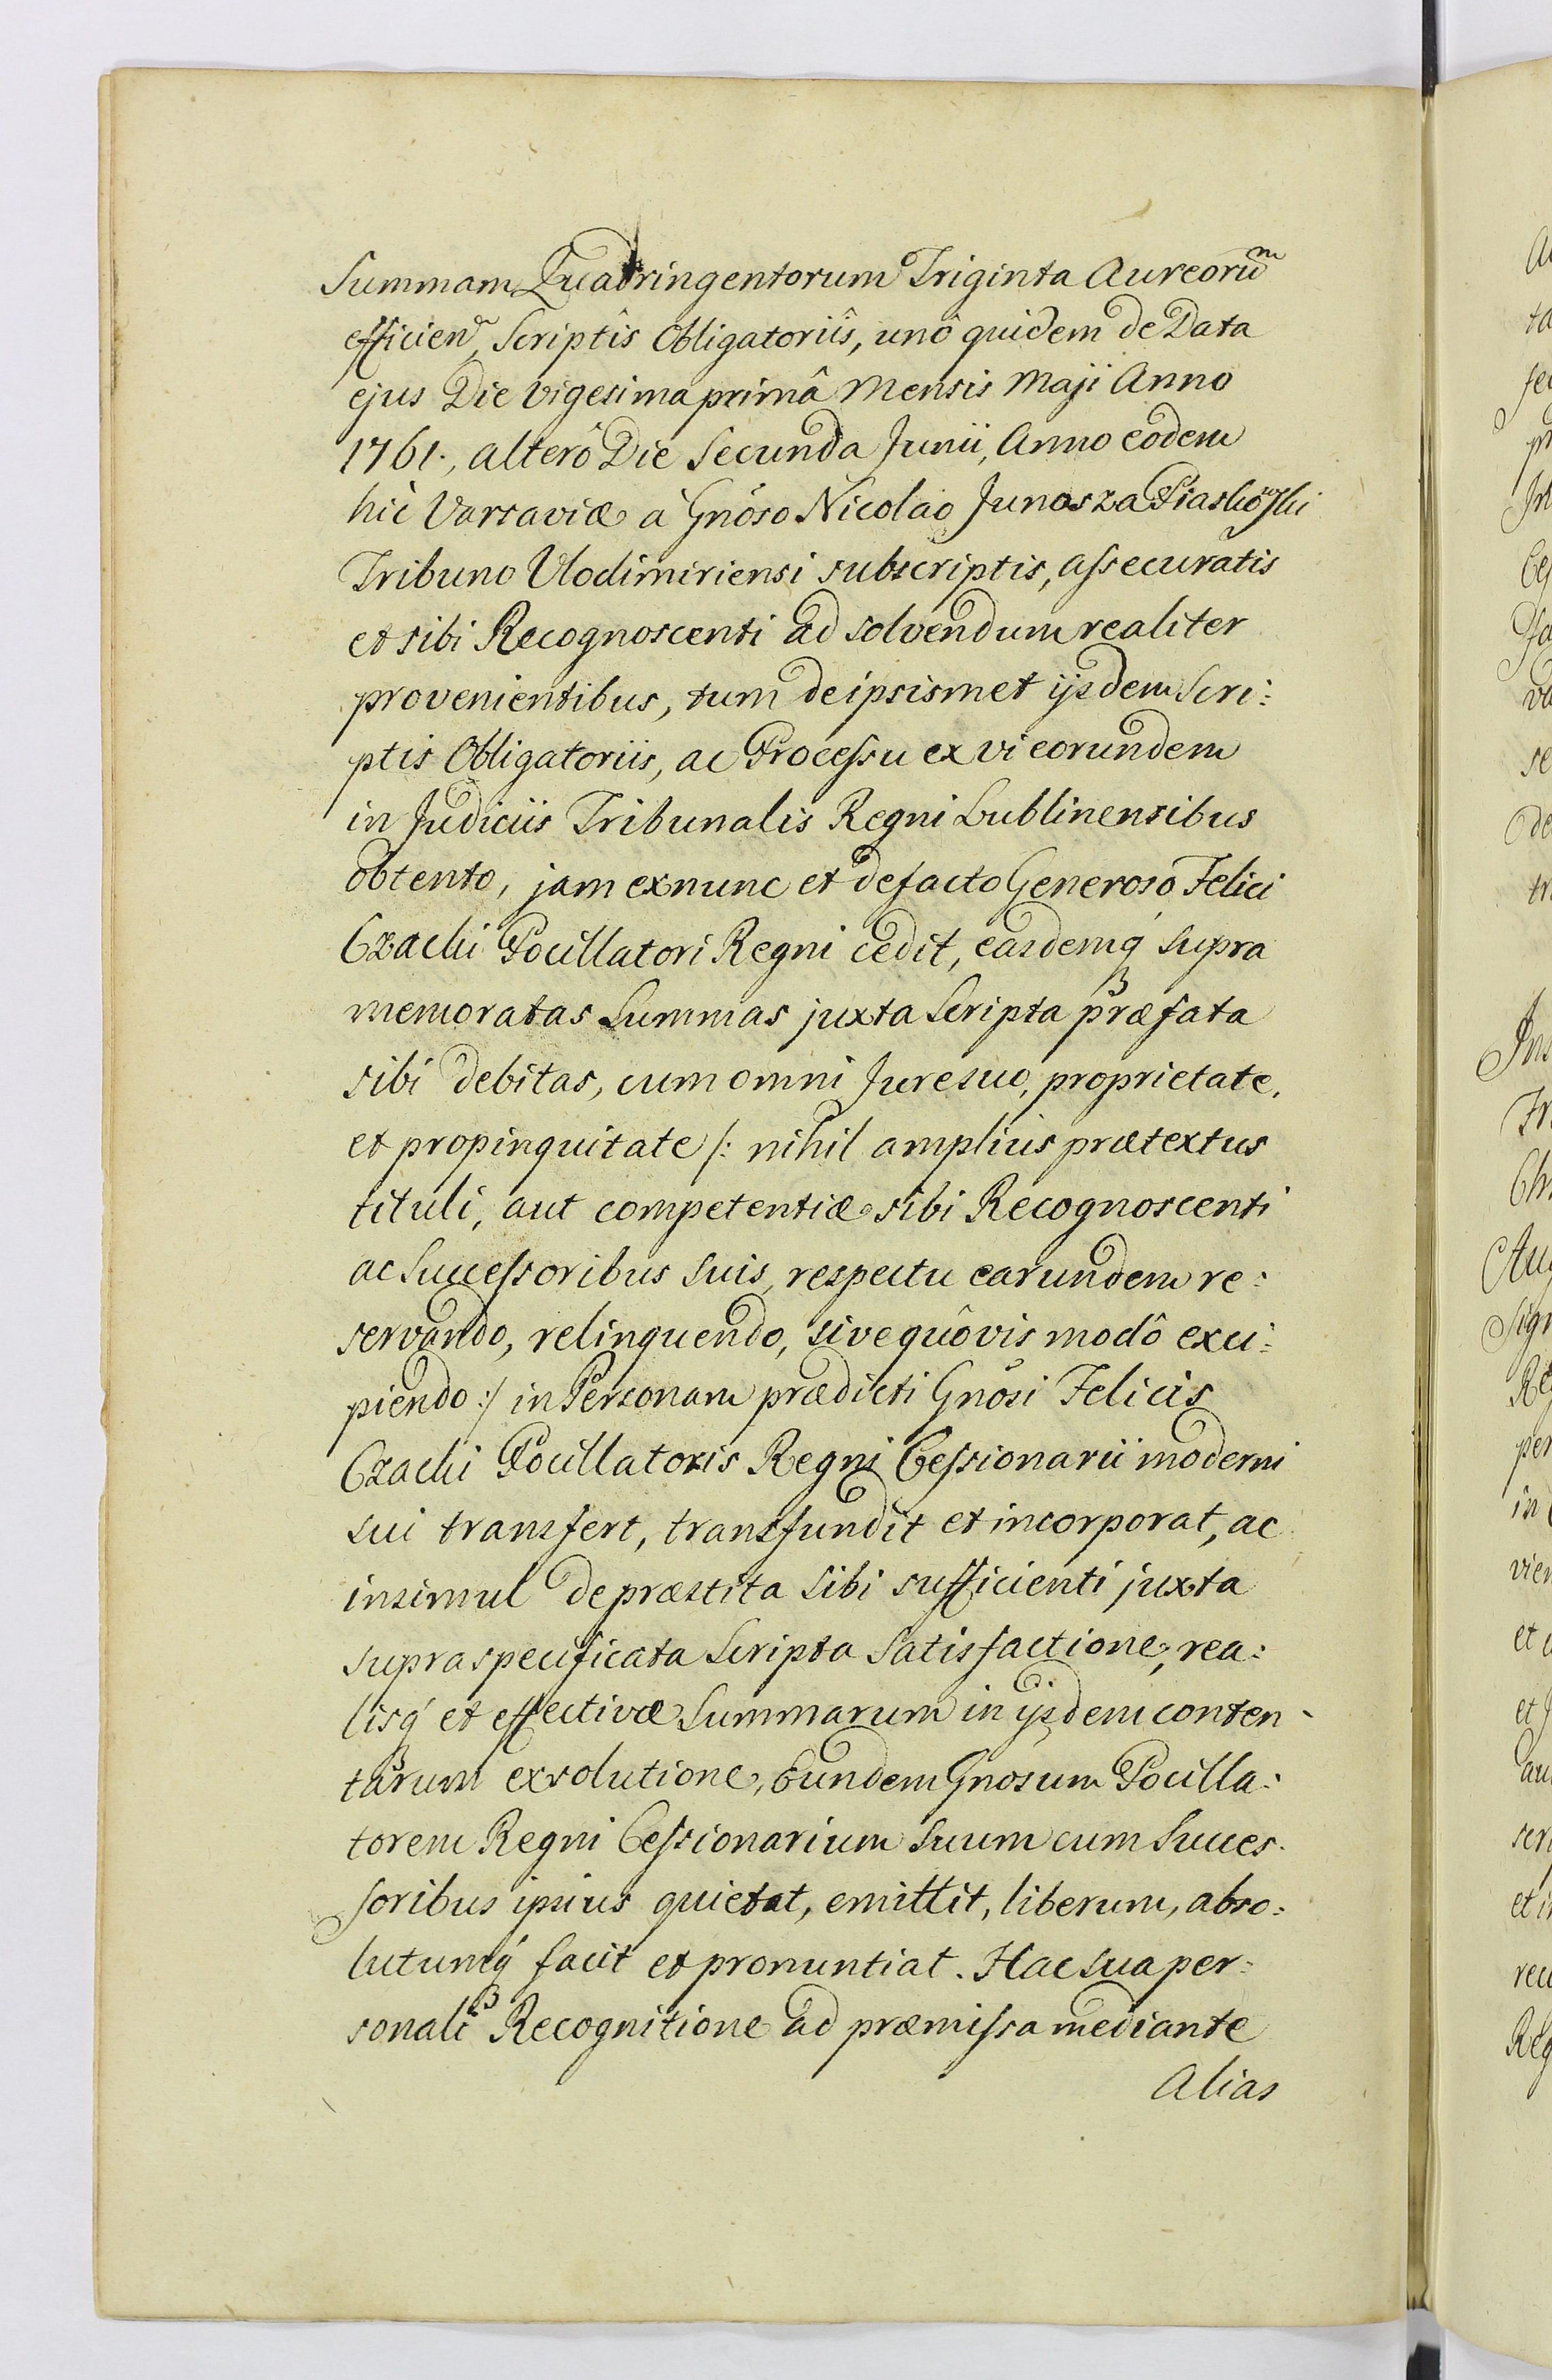 Summam Quadringentorum Triginta Aureorum
efficien, Scriptîs Obligatoriîs, unô quidem de Data
ejus Die vigesima primâ Mensis Maji Anno
1761., alterô Die Secunda Junii, Anno eodem
hic Varsaviæ a Gnoso Nicolao Junosza Piaskowski
Tribuno Vlodimiriensi subscriptis, assecuratis
et sibi Recognoscenti ad solvendum realiter
provenientibus, tum de ipsismet ijsdem Scri:
ptis Obligatoriis, ac Processu ex vi eorundem
in Judiciis Tribunalis Regni Lublinensibus
obtento, jam exnunc et defacto Generoso Felici
Czacki Pocillatori Regni cedit, easdemq́ supra
memoratas Summas juxta Scripta præfata
sibi debitas, cum omni Jure suo, proprietate,
et propinquitate /: nihil amplius prætextus
tituli, aut competentiæ sibi Recognoscenti
ac Successoribus suis, respectu earundem re:
servando, relinquendo, sive quôvis modô exci:
piendo :/ in Personam prædicti Gnosi Felicis
Czacki Pocillatoris Regni Cessionarii moderni
sui transfert, transfundit et incorporat, ac
insimul de præstita sibi sufficienti juxta
supra specificata Scripta Satisfactione, rea:
lisq́ et effectivæ Summarum in ijsdem conten-
tarum exsolutione, Eundem Gnosum Pocilla:
torem Regni Cessionarium Suum cum Succes-
soribus ipsius quietat, emittit, liberum, abso:
lutumq́ facit et pronuntiat. Hac sua per:
sonali Recognitione ad præmissa mediante
Alias